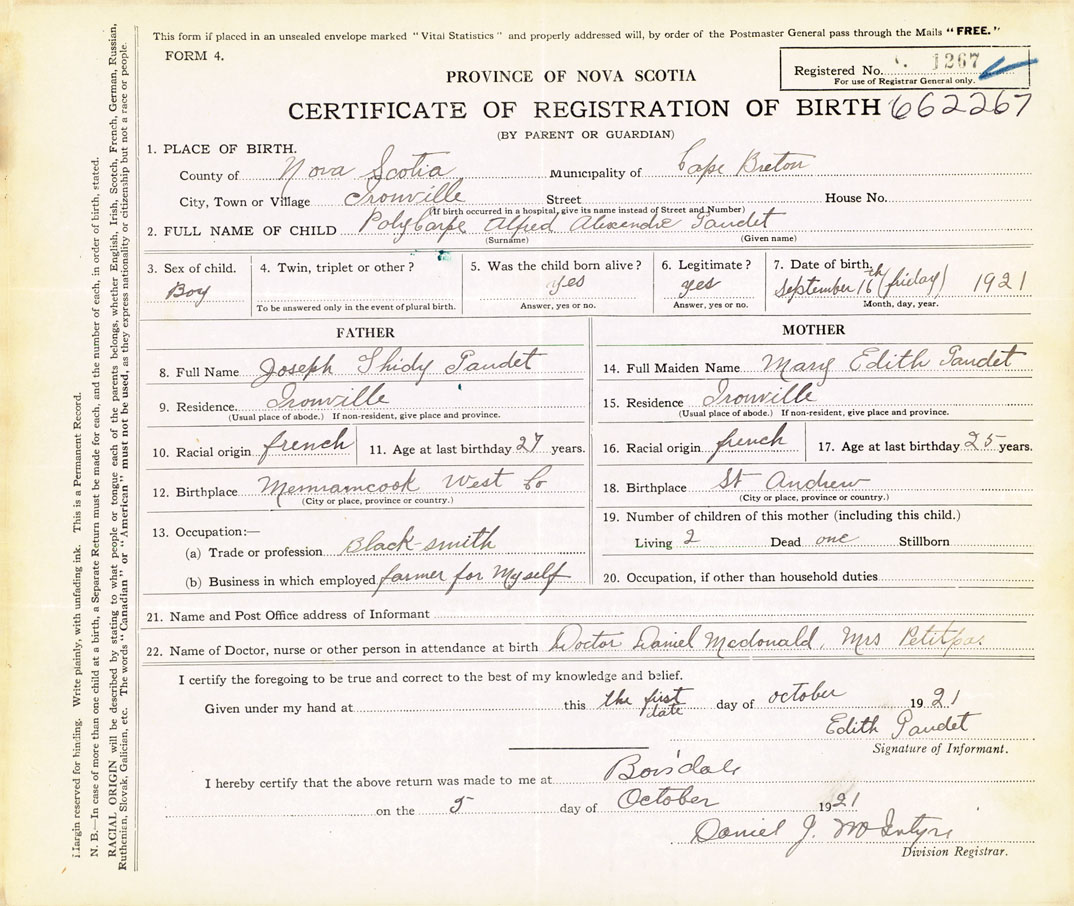 This form if placed in an unsealed envelope marked "Vital Statistics" and properly addressed will, by order of the Postmaster General pass through the Mails "FREE."
FORM 4.
Registered No. 1267
For use of Registrar General only.
PROVINCE OF NOVA SCOTIA
CERTIFICATE OF REGISTRATION OF BIRTH 662267
(BY PARENT OR GUARDIAN)
1. PLACE OF BIRTH.
County of Nova Scotia Municipality of Cape Breton
City, Town or Village Ironville Street House No.
(If birth occurred in a hospital, give its name instead of Street and Number)
2. FULL NAME OF CHILD PolyCarpe Alfred Alexendre Gaudet
(Surname) (Given name)
3. Sex of child. 4. Twin, triplet or other? 5. Was the child born alive? 6. Legitimate? 7. Date of birth.
Boy yes yes September 16th (friday) 1921
To be answered only in the event of plural birth. Answer, yes or no. Answer, yes or no. Month, day, year.
FATHER
8. Full Name Joseph Thidy Gaudet
9. Residence Ironville
(Usual place of abode.) If non-resident, give place and province.
10. Racial origin french 11. Age at last birthday 27 years.
12. Birthplace Memramcook West Co
(City or place, province or country.)
13. Occupation:—
(a) Trade or profession Black-smith
(b) Business in which employed farmer for Myself
MOTHER
14. Full Maiden Name Mary Edith Gaudet
15. Residence Ironville
(Usual place of abode.) If non-resident, give place and province.
16. Racial origin french 17. Age at last birthday 25 years.
18. Birthplace St Andrew
(City or place, province or country.)
19. Number of children of this mother (including this child.)
Living 2 Dead one Stillborn
20. Occupation, if other than household duties
21. Name and Post Office address of Informant
22. Name of Doctor, nurse or other person in attendance at birth Doctor Daniel Mcdonald, Mrs Petitpas
I certify the foregoing to be true and correct to the best of my knowledge and belief.
Given under my hand at this the first date day of october 1921
Edith Gaudet
Signature of Informant.
I hereby certify that the above return was made to me at Boisdale
on the 5 day of October 1921
Daniel J. McIntyre
Division Registrar.
Margin reserved for binding. Write plainly, with unfading ink. This is a Permanent Record.
N. B.—In case of more than one child at a birth, a Separate Return must be made for each, and the number of each, in order of birth, stated.
RACIAL ORIGIN will be described by stating to what people or tongue each of the parents belongs, whether English, Irish, Scotch, French, German, Russian,
Ruthenian, Slovak, Galician, etc. The words "Canadian" or "American" must not be used, as they express nationality or citizenship but not a race or people.